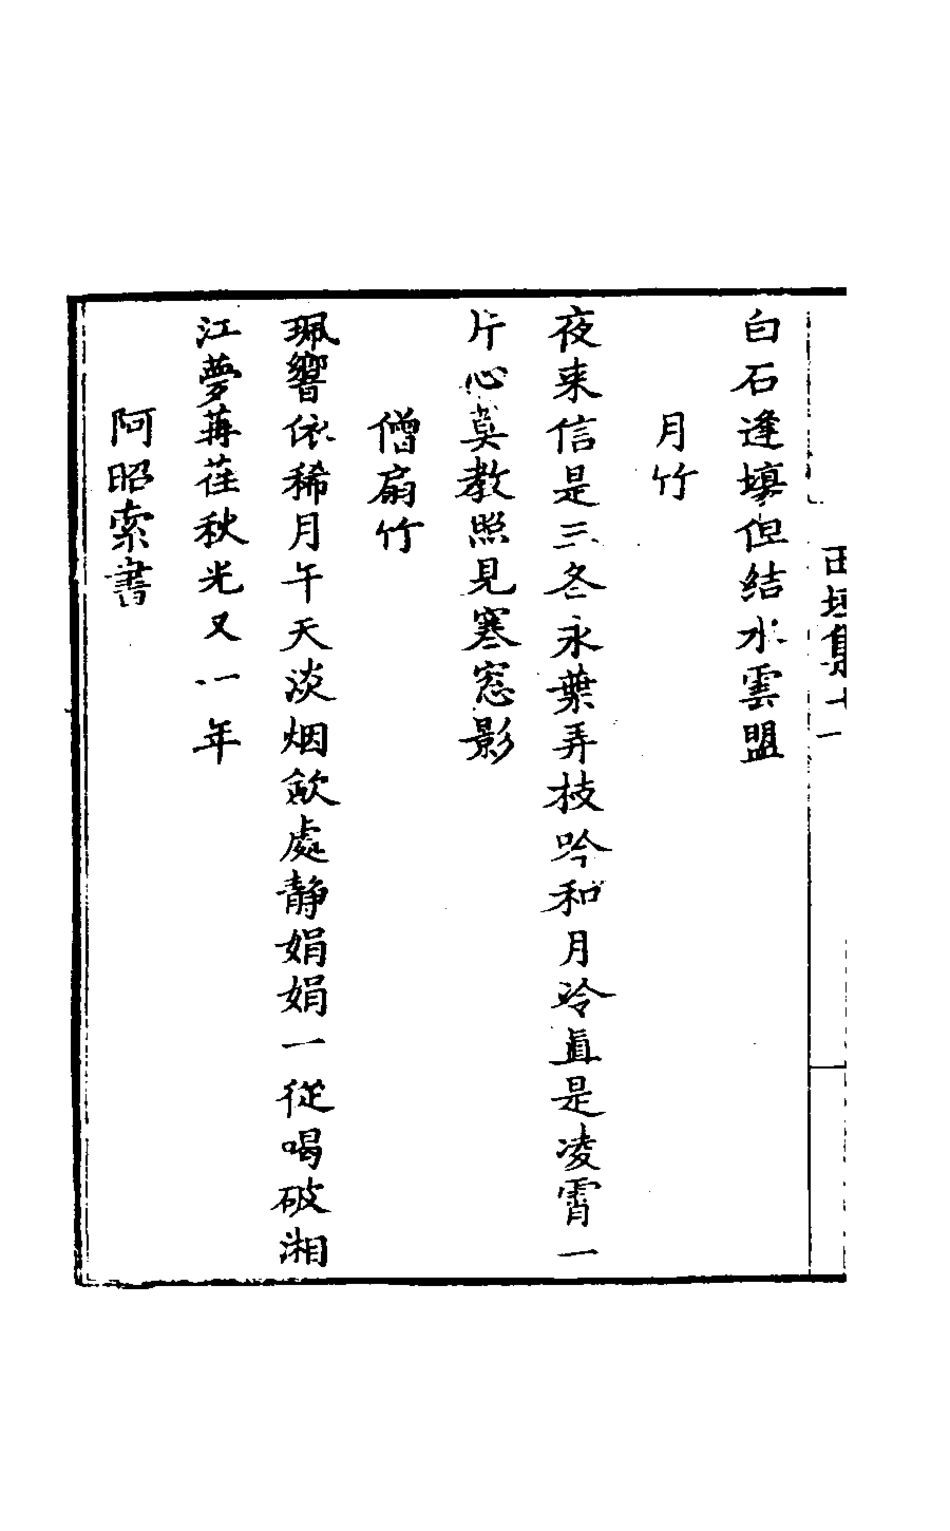 白石逢塲但結水雲盟
月竹
夜来信是三冬永葉弄枝吟和月冷真是凌霄一
片心莫教照見寒窓影
僧扇竹
珮響依稀月午天淡烟欹處静娟娟一從喝破湘
江夢苒荏秋光又一年
阿昭索書
集十一